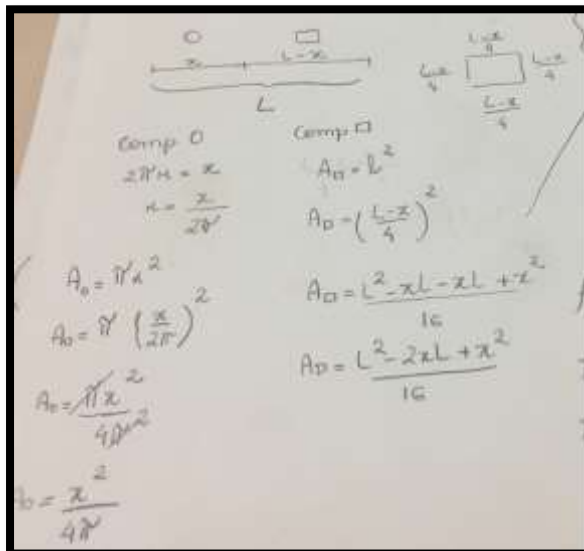 x L-x
L
L-x/4
L-x/4 L-x/4
L-x/4
Comp O
2πr = x
r = x/2π
A○ = πr²
A○ = π (x/2π)²
A○ = πx²/4π²
A○ = x²/4π
Comp □
A□ = l²
A□ = (L-x/4)²
A□ = L²-xL-xL+x²/16
A□ = L²-2xL+x²/16